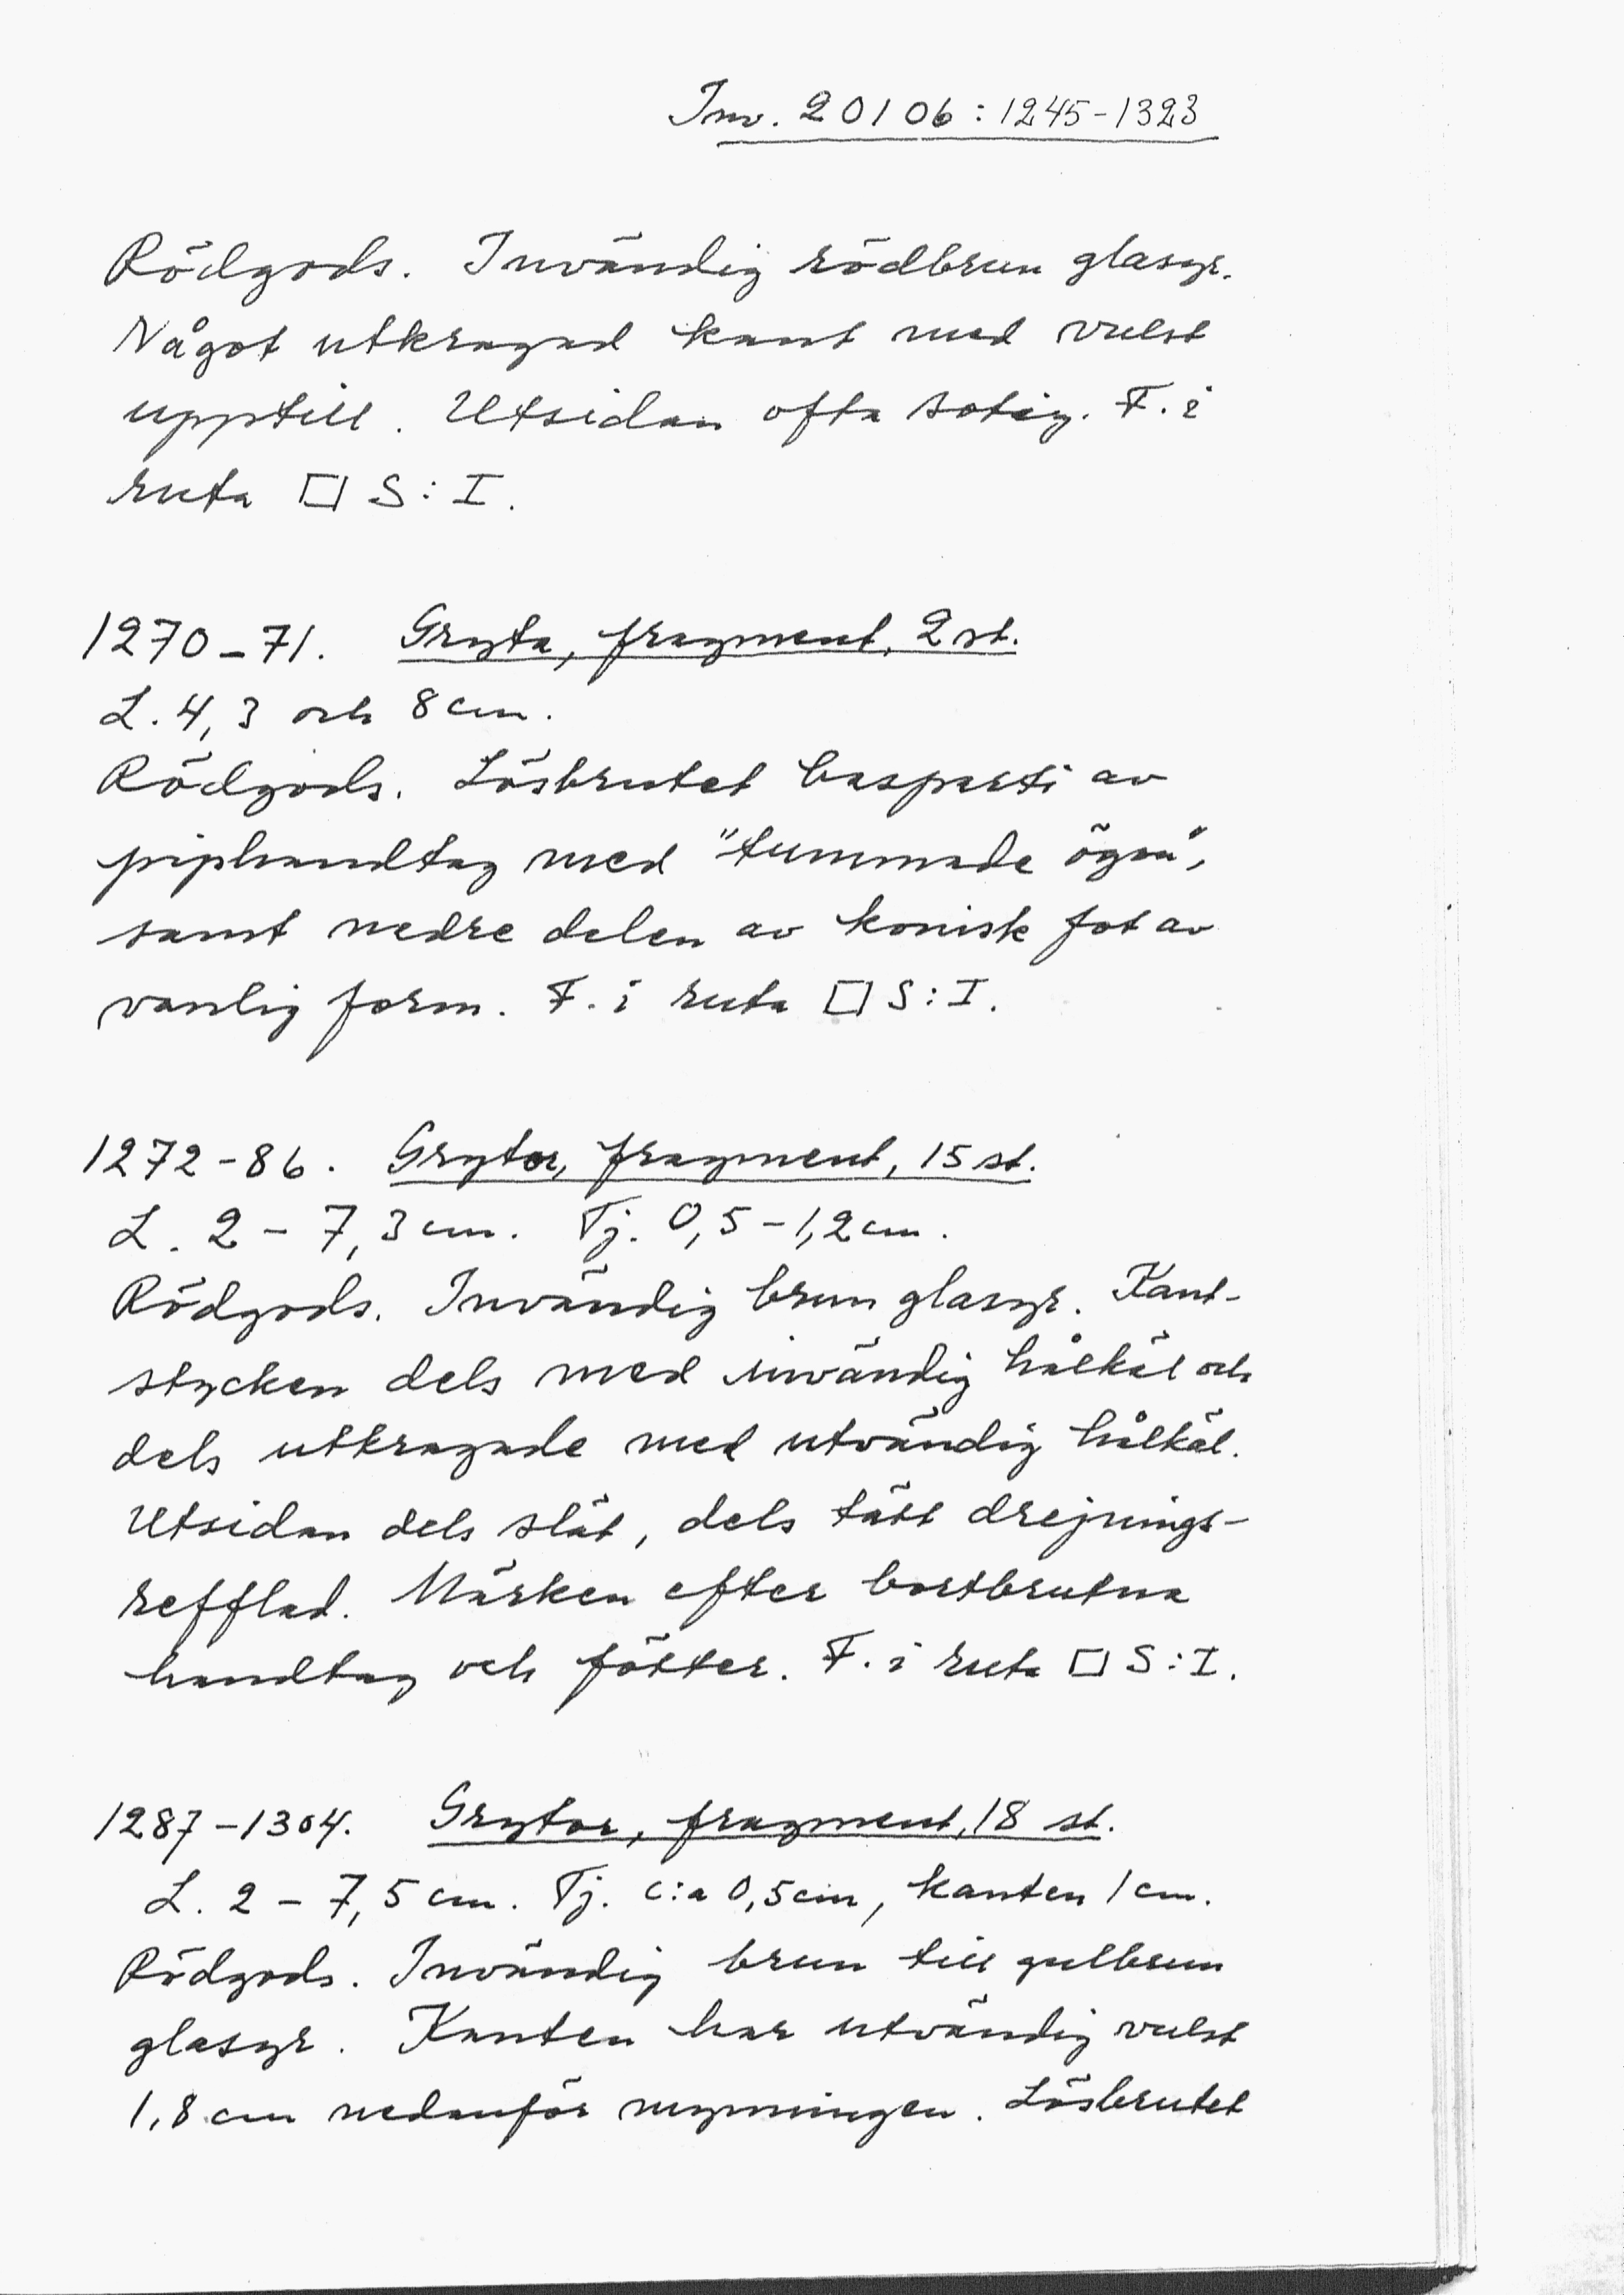 Inv. 20106:1245-1323
Rödgods. Invändig rödbrun glasyr.
Något utkragad kant med vulst
upptill. Utsidan ofta sotig. F. i
ruta □ S:I.
1270-71. Gryta, fragment, 2 st.
L. 4,3 och 8 cm.
Rödgods. Lösbrutet basparti av
piphandtag med "tummade ögon",
samt nedre delen av konisk fot av
vanlig form. F. i ruta □ S:I.
1272-86. Grytor, fragment, 15 st.
L. 2 - 7,3 cm. Tj. 0,5-1,2 cm.
Rödgods. Invändig brun glasyr. Kant-
stycken dels med invändig hålkäl och
dels utkragade med utvändig hålkäl.
Utsidan dels slät, dels tätt drejnings-
refflad. Märken efter bortbrutna
handtag och fötter. F. i ruta □ S:I.
1287-1304. Grytor, fragment, 18 st.
L. 2 - 7,5 cm. Tj. c:a 0,5 cm, kanten 1 cm.
Rödgods. Invändig brun till gulbrun
glasyr. Kanten har utvändig vulst
1,8 cm nedanför mynningen. Lösbrutet